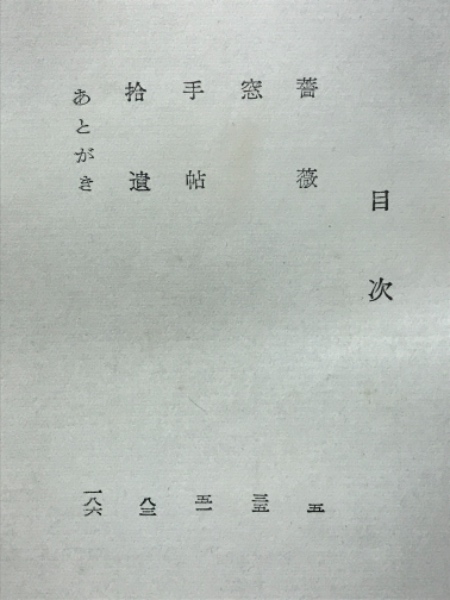 目次
薔薇 五
窓 三五
手帖 五一
拾遺 八三
あとがき 一八六